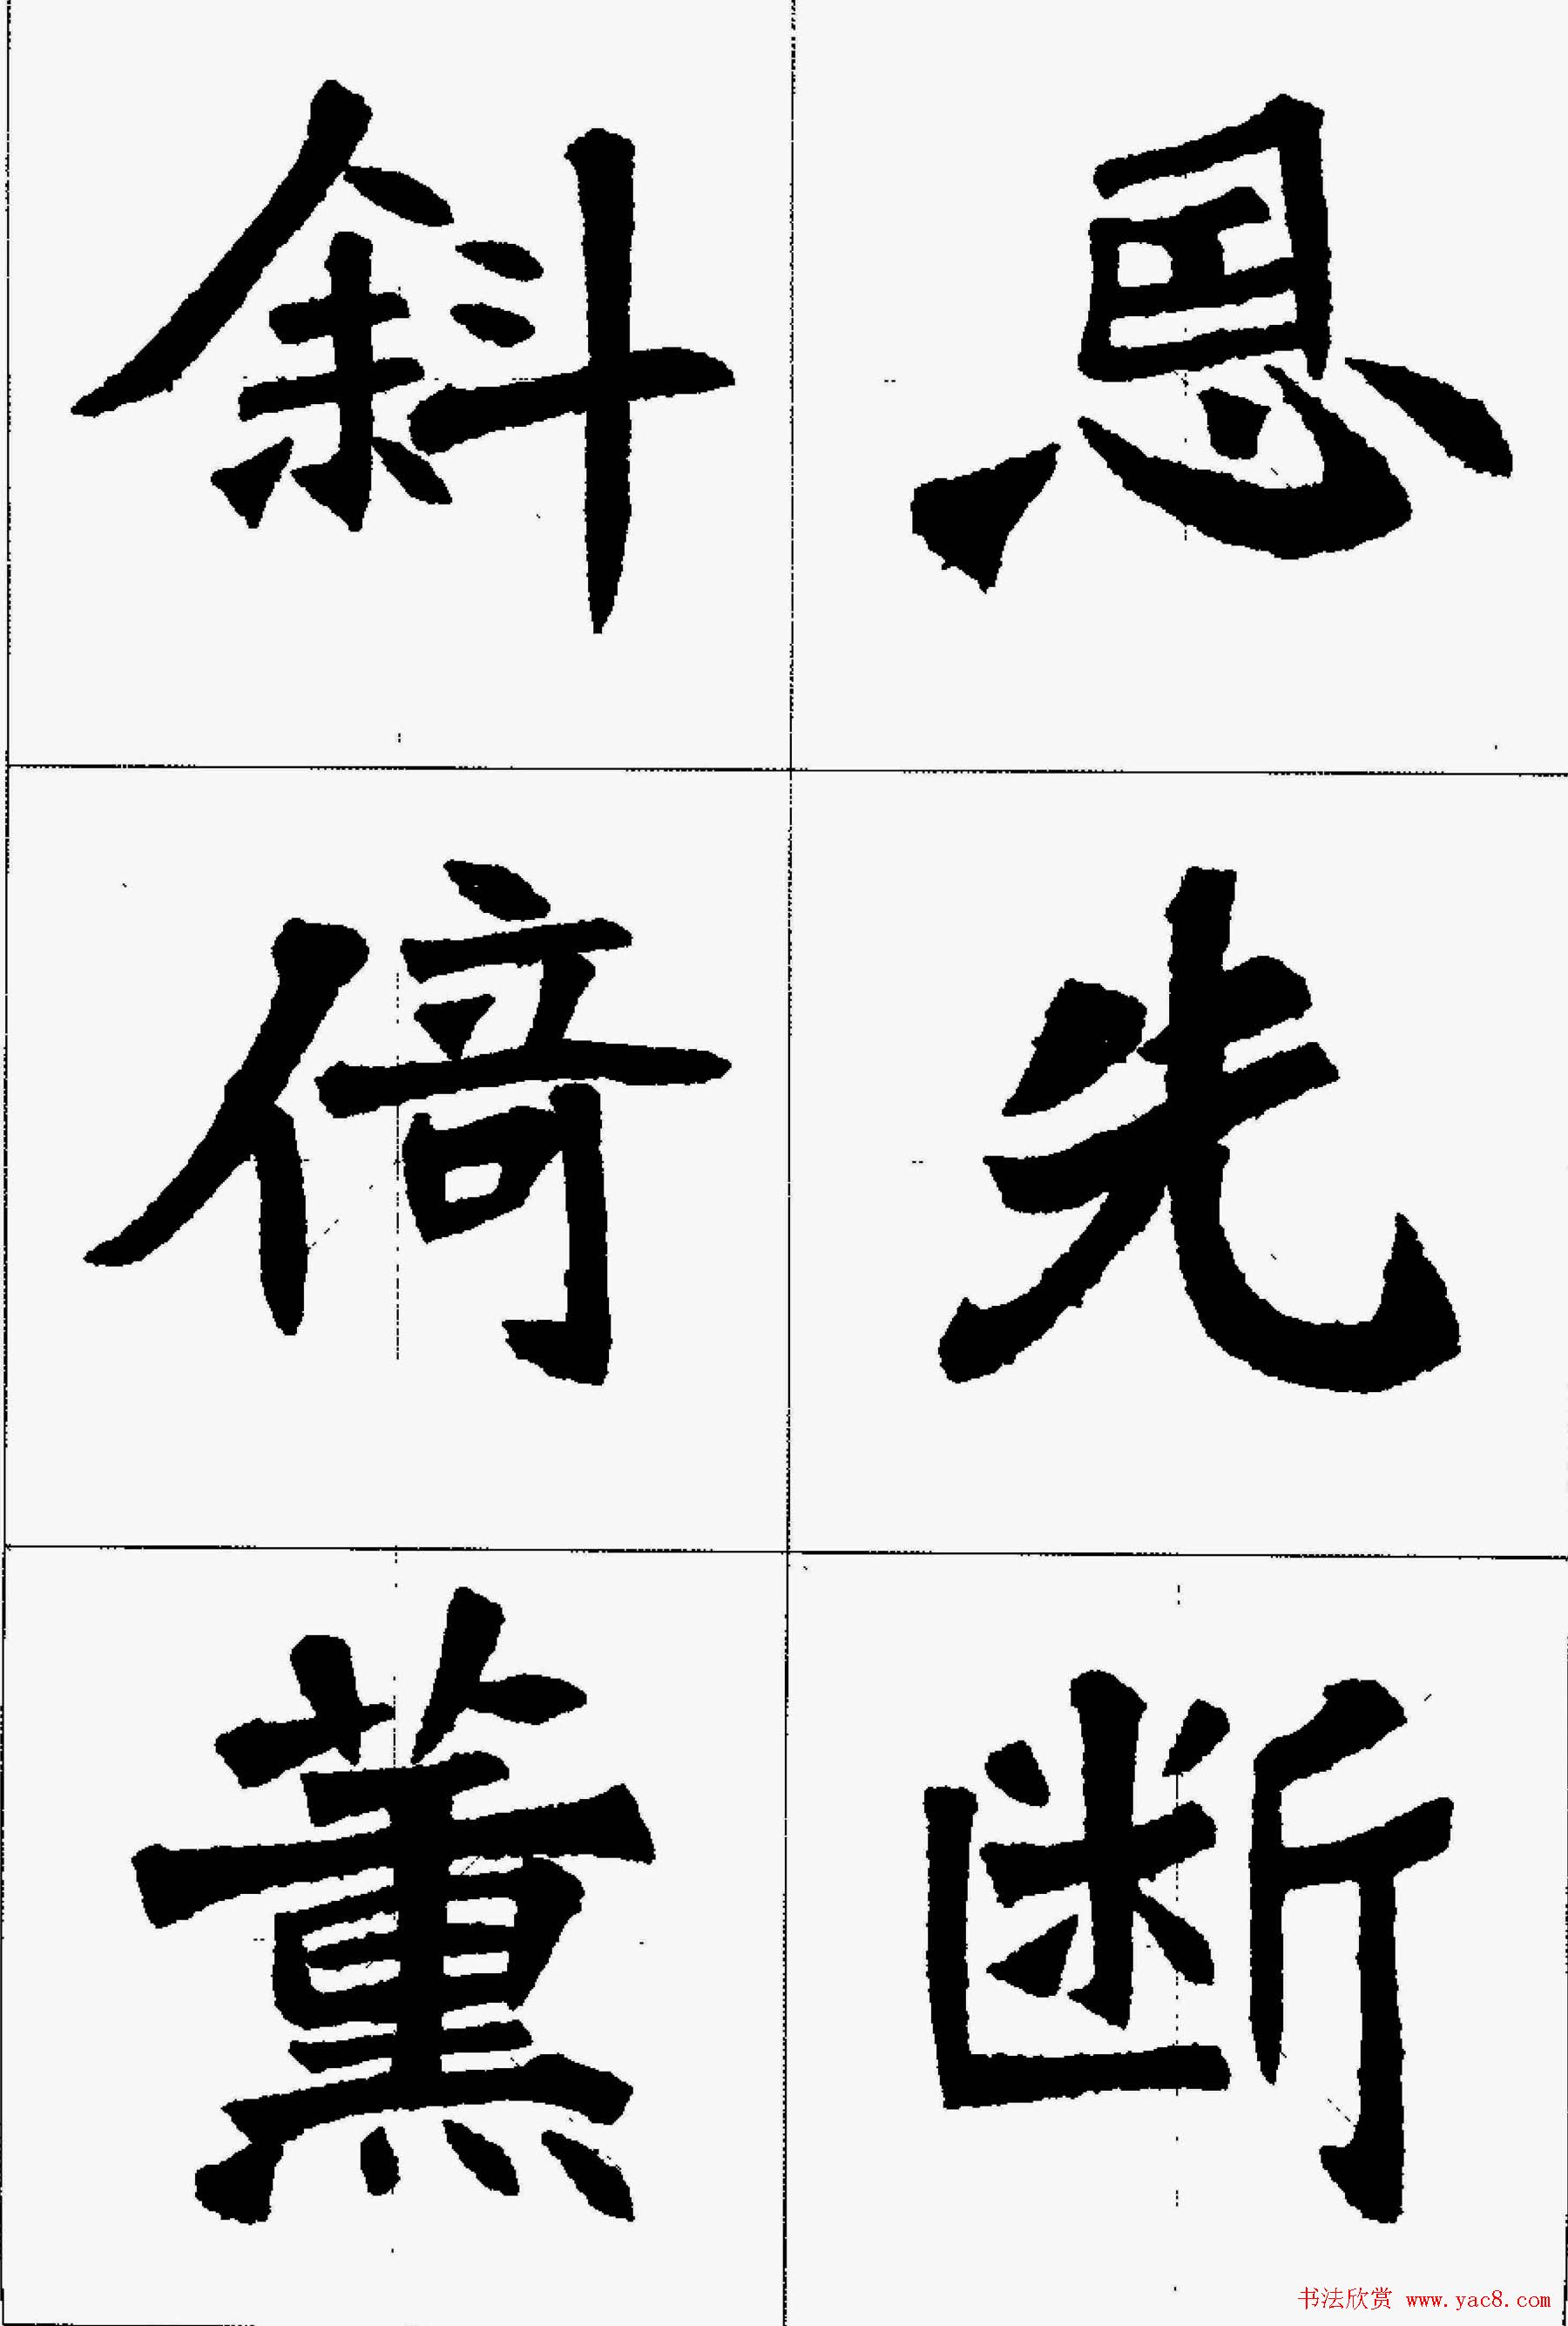 恩先断
斜倚薰
书法欣赏 www.yac8.com